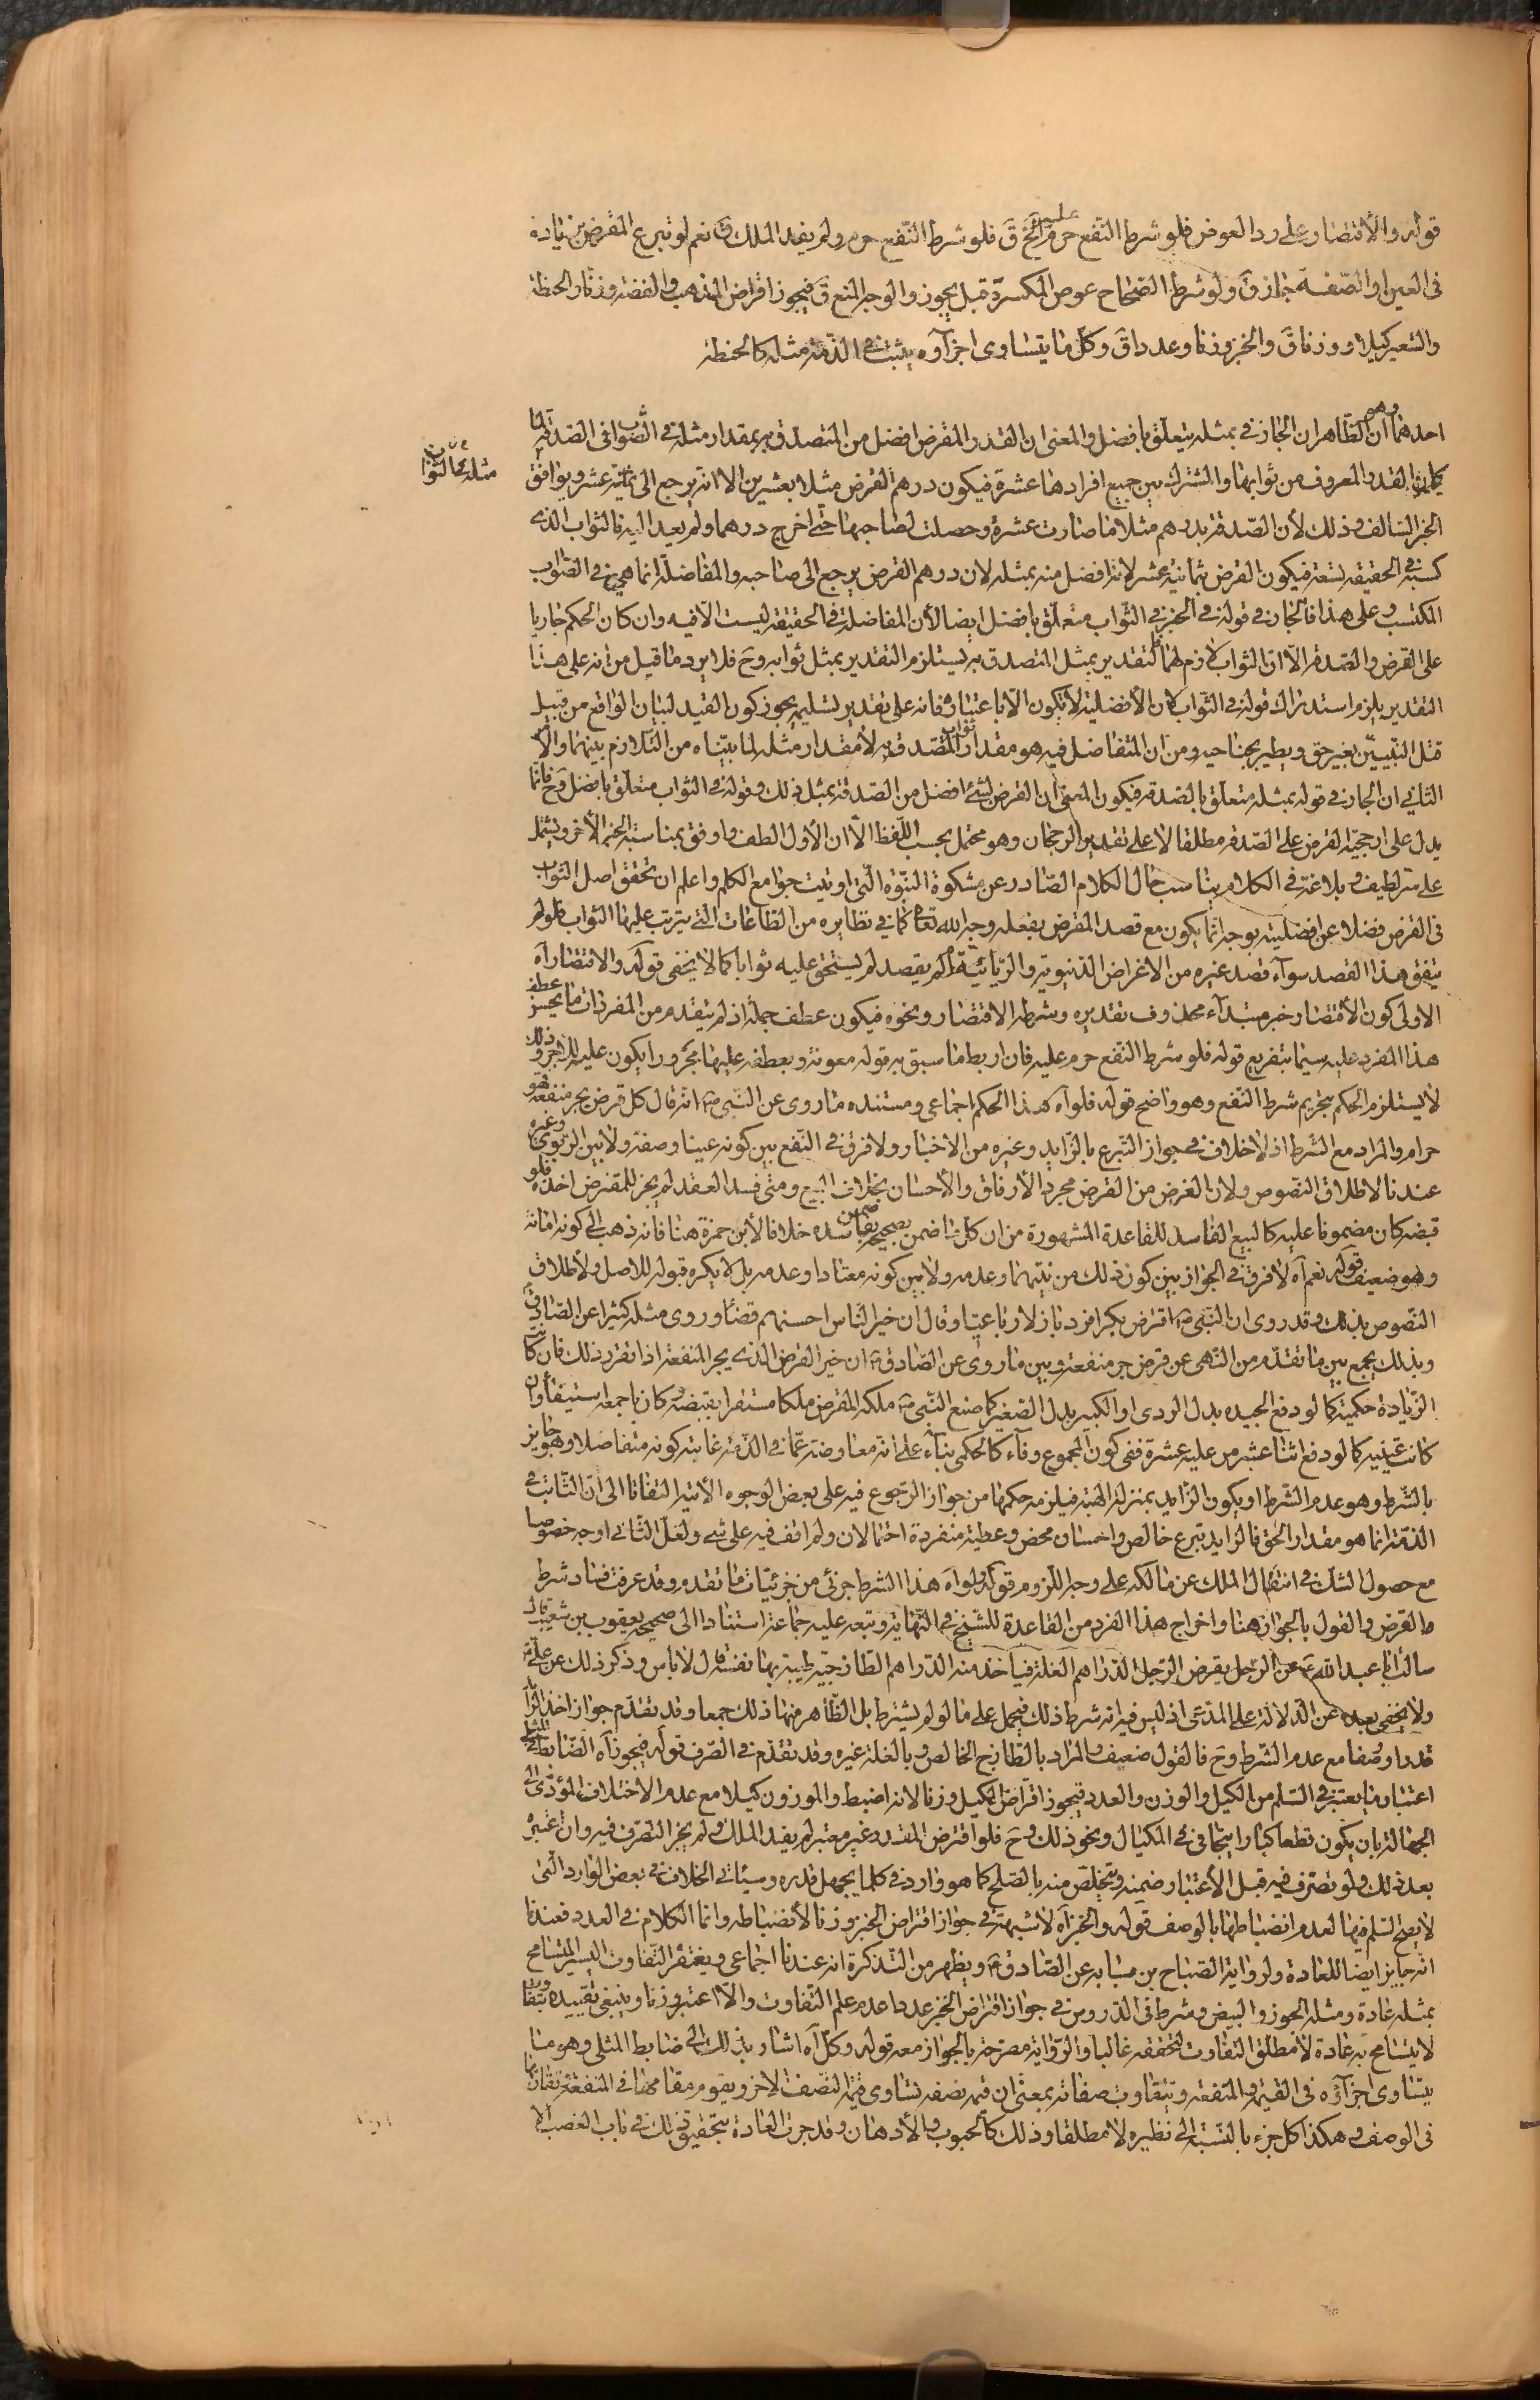 قوله والاقتصار على رد العوض فلو شرط النفع حرم عليه الخ ق فلو شرط النفع حرم ولم يفد الملك ق نعم لو تبرع المقترض بزيادة
في العين او الصفة جاز ق ولو شرط الصحاح عوض المكسرة قيل يجوز والوجه المنع ق فيجوز اقراض الذهب والفضة وزنا والحنطة
والشعير كيلا ووزنا ق والخبز وزنا وعددا ق وكل ما يتساوى اجزآؤه يثبت في الذمة مثله كالحنطة
احدهما وهو الظاهر ان الجار في بمثله يتعلق بافضل والمعنى ان القدر المقرض افضل من المتصدق به بمقدار مثله في الثواب في الصدقة لما
القدر المعروف من ثوابها والمشترك بين جميع افرادها عشرة فيكون درهم القرض مثلا بعشرين الا انه يرجع الى ثمانية عشر ويوافق
مثله في الثواب
الخبر السالف وذلك لأن الصدقة بدرهم مثلا ما صارت عشرة وحصلت لصاحبها حتى اخرج درهما ولم يعد اليه فالثواب الذى
كسبه في الحقيقة تسعة فيكون القرض بثمانية عشر لانه افضل منه بمثله لان درهم القرض يرجع الى صاحبه والمفاضلة انما هي في الثواب
المكتسب وعلى هذا فالجار في قوله في الخبر في الثواب متعلق بافضل ايضا لأن المفاضلة في الحقيقة ليست الا فيه وان كان الحكم جاريا
على القرض والصدقة الا ان الثواب لازم لهما فالتقدير بمثل المتصدق به يستلزم التقدير بمثل ثوابه وح فلا يرد ما قيل من انه على هذا
التقدير يلزم استدراك قوله في الثواب لان الأفضلية لا تكون الا باعتباره فانه على تقدير تسليمه يجوز كون القيد لبيان الواقع من قبيل
قتل النبيين بغير حق ويطير بجناحيه ومن ان المتفاضل فيه هو مقدار ثواب المتصدق به لا مقدار مثله لما بيناه من التلازم بينهما والا
الثاني ان الجار في قوله بمثله متعلق بالصدقة فيكون المعنى ان القرض لشئ افضل من الصدقة بمثل ذلك وقوله في الثواب متعلق بافضل وح فانما
يدل على ارجحية القرض على الصدقة مطلقا لا على تقدير الرجحان وهو محتمل بحسب اللفظ الا ان الأول الطف واوفق بمناسبة الخبر الأخر ويشتمل
على سر لطيف وبلاغة في الكلام يناسب حال الكلام الصادر عن مشكوة النبوة التي اوتيت جوامع الكلم واعلم ان تحقق اصل الثواب
في القرض فضلا عن افضليته بوجه انما يكون مع قصد المقرض بفعله وجه الله تعالى كما في نظايره من الطاعات التى يترتب عليها الثواب فلو لم
يتفق هذا القصد سوآء قصد غيره من الاغراض الدنيوية والريائية ام لم يقصد لم يستحق عليه ثوابا كما لا يخفى قوله والاقتصار آه
الاولى كون الاقتصار خبر مبتدآء محذوف تقديره وشرطه الاقتصار ونحوه فيكون عطف جملة اذ لم يتقدم من المفردات ما يحسن عطف
هذا المفرد عليه سيما بتفريع قوله فلو شرط النفع حرم عليه فان اربط ما سبق به قوله معونة وبعطفه عليها مجرورا يكون علية للاجر وذلك
لا يستلزم الحكم بتحريم شرط النفع وهو واضح قوله فلو آه هذا الحكم اجماعي ومستنده ما روى عن النبى ص انه قال كل قرض يجر منفعة فهو
حرام والمراد مع الشرط اذ لا خلاف في جواز التبرع بالزايد وغيره من الاخبار ولا فرق في النفع بين كونه عينا وصفة ولا بين الربوى وغيره
عندنا لاطلاق النصوص ولان الغرض من القرض مجرد الأرفاق والأحسان بخلاف البيع ومتى فسد العقد لم يجز للمقترض اخذه فلو
قبضه كان مضمونا عليه كالبيع الفاسد للقاعدة المشهورة من ان كل ما ضمن بصحيحه ضمن بفاسده خلافا لأبن حمزة هنا فانه ذهب الى كونه امانة
وهو ضعيف قوله نعم آه لا فرق في الجواز بين كون ذلك من نيتهما وعدمه ولا بين كونه معتادا وعدمه بل لا يكره قبوله للاصل ولأطلاق
النصوص بذلك وقد روى ان النبى ص اقترض بكرا فرد بازلا رباعيا وقال ان خير الناس احسنهم قضآء وروى مثله كثيرا عن الصادق
وبذلك يجمع بين ما تقدم من النهى عن قرض جر منفعة وبين ما روى عن الصادق ع ان خير القرض الذى يجر المنفعة اذا تقرر ذلك فان كانت
الزيادة حكمية كما لو دفع الجيد بدل الردى او الكبير بدل الصغير كما صنع النبى ص ملكه المقرض ملكا مستقرا بقبضه وكان باجمعه استيفآء وان
كانت عينية كما لو دفع اثنا عشر من عليه عشرة ففى كون المجموع وفآء كالحكمى بنآء على انه معاوضة عما في الذمة غايته كونه متفاضلا وهو جايز
بالشرط وهو عدم الشرط او يكون الزايد بمنزلة الهبة فيلزمه حكمها من جواز الرجوع فيه على بعض الوجوه الأتية التفاتا الى ان الثابت في
الذمة انما هو مقدار الحق فالزايد تبرع خالص واحسان محض وعطية منفردة احتمالان ولم اقف فيه على شئ ولعل الثاني اوجه خصوصا
مع حصول الشك في انتقال الملك عن مالكه على وجه اللزوم قوله ولو آه هذا الشرط جزئى من جزئيات ما تقدم وقد عرفت فساد شرط
القرض والقول بالجواز هنا واخراج هذا الفرد من القاعدة للشيخ في النهاية وتبعه عليه جماعة استنادا الى صحيحة يعقوب بن شعيب قال
سالت ابا عبد الله ع عن الرجل يقرض الرجل الدراهم الغلة فياخذ منه الدراهم الطازجية طيبة بها نفسه قال لا باس وذكر ذلك عن علي ع
ولا يخفى بعده عن الدلالة على المدعى اذ ليس فيه انه شرط ذلك فيحمل على ما لو لم يشترط بل الظاهر منها ذلك جمعا وقد تقدم جواز اخذ الزايد
قدرا ووصفا مع عدم الشرط وح فالقول ضعيف والمراد بالطازج الخالص وبالغلة غيره وقد تقدم في الصرف قوله فيجوز آه الضابط للمثلى
اعتباره بما يعتبر في السلم من الكيل والوزن والعدد فيجوز اقراض المكيل وزنا لانه اضبط والموزون كيلا مع عدم الاختلاف المؤدى الى
الجهالة بان يكون قطعا كبارا يتجافى في المكيال ونحو ذلك وح فلو اقترض المقدر غير معتبر لم يفد الملك ولم يجز التصرف فيه وان اعتبره
بعد ذلك ولو تصرف فيه قبل الأعتبار ضمنه ويتخلص منه بالصلح كما هو وارد في كلما يجهل قدره وسيأتى الخلاف في بعض الموارد التى
لا يصح السلم فيها لعدم انضباطها بالوصف قوله والخبز آه لا شبهة في جواز اقتراض الخبز وزنا لأنضباطه وانما الكلام في العدد فعندنا
انه جايز ايضا للعادة ولرواية الصباح بن سيابه عن الصادق ع ويظهر من التذكرة انه عندنا اجماعى ويغتفر التفاوت اليسير المتسامح
بمثله عادة ومثله الجوز والبيض وشرط في الدروس في جواز اقتراض الخبز عددا عدم علم التفاوت والا اعتبر وزنا وينبغى تقييده بتفاوت
لا يتسامح به عادة لا مطلق التفاوت لتحققه غالبا والرواية مصرحة بالجواز معه قوله وكل آه اشار بذلك الى ضابط المثلى وهو ما
يتساوى اجزآؤه في القيمة والمنفعة ويتقارب صفاته بمعنى ان قيمة نصفه تساوى قيمة النصف الاخر ويقوم مقامها في المنفعة وتقاربا
في الوصف وهكذا كل جزء بالنسبة الى نظيره لا مطلقا وذلك كالحبوب والأدهان وقد جرت العادة بتحقيق ذلك في باب الغصب الا